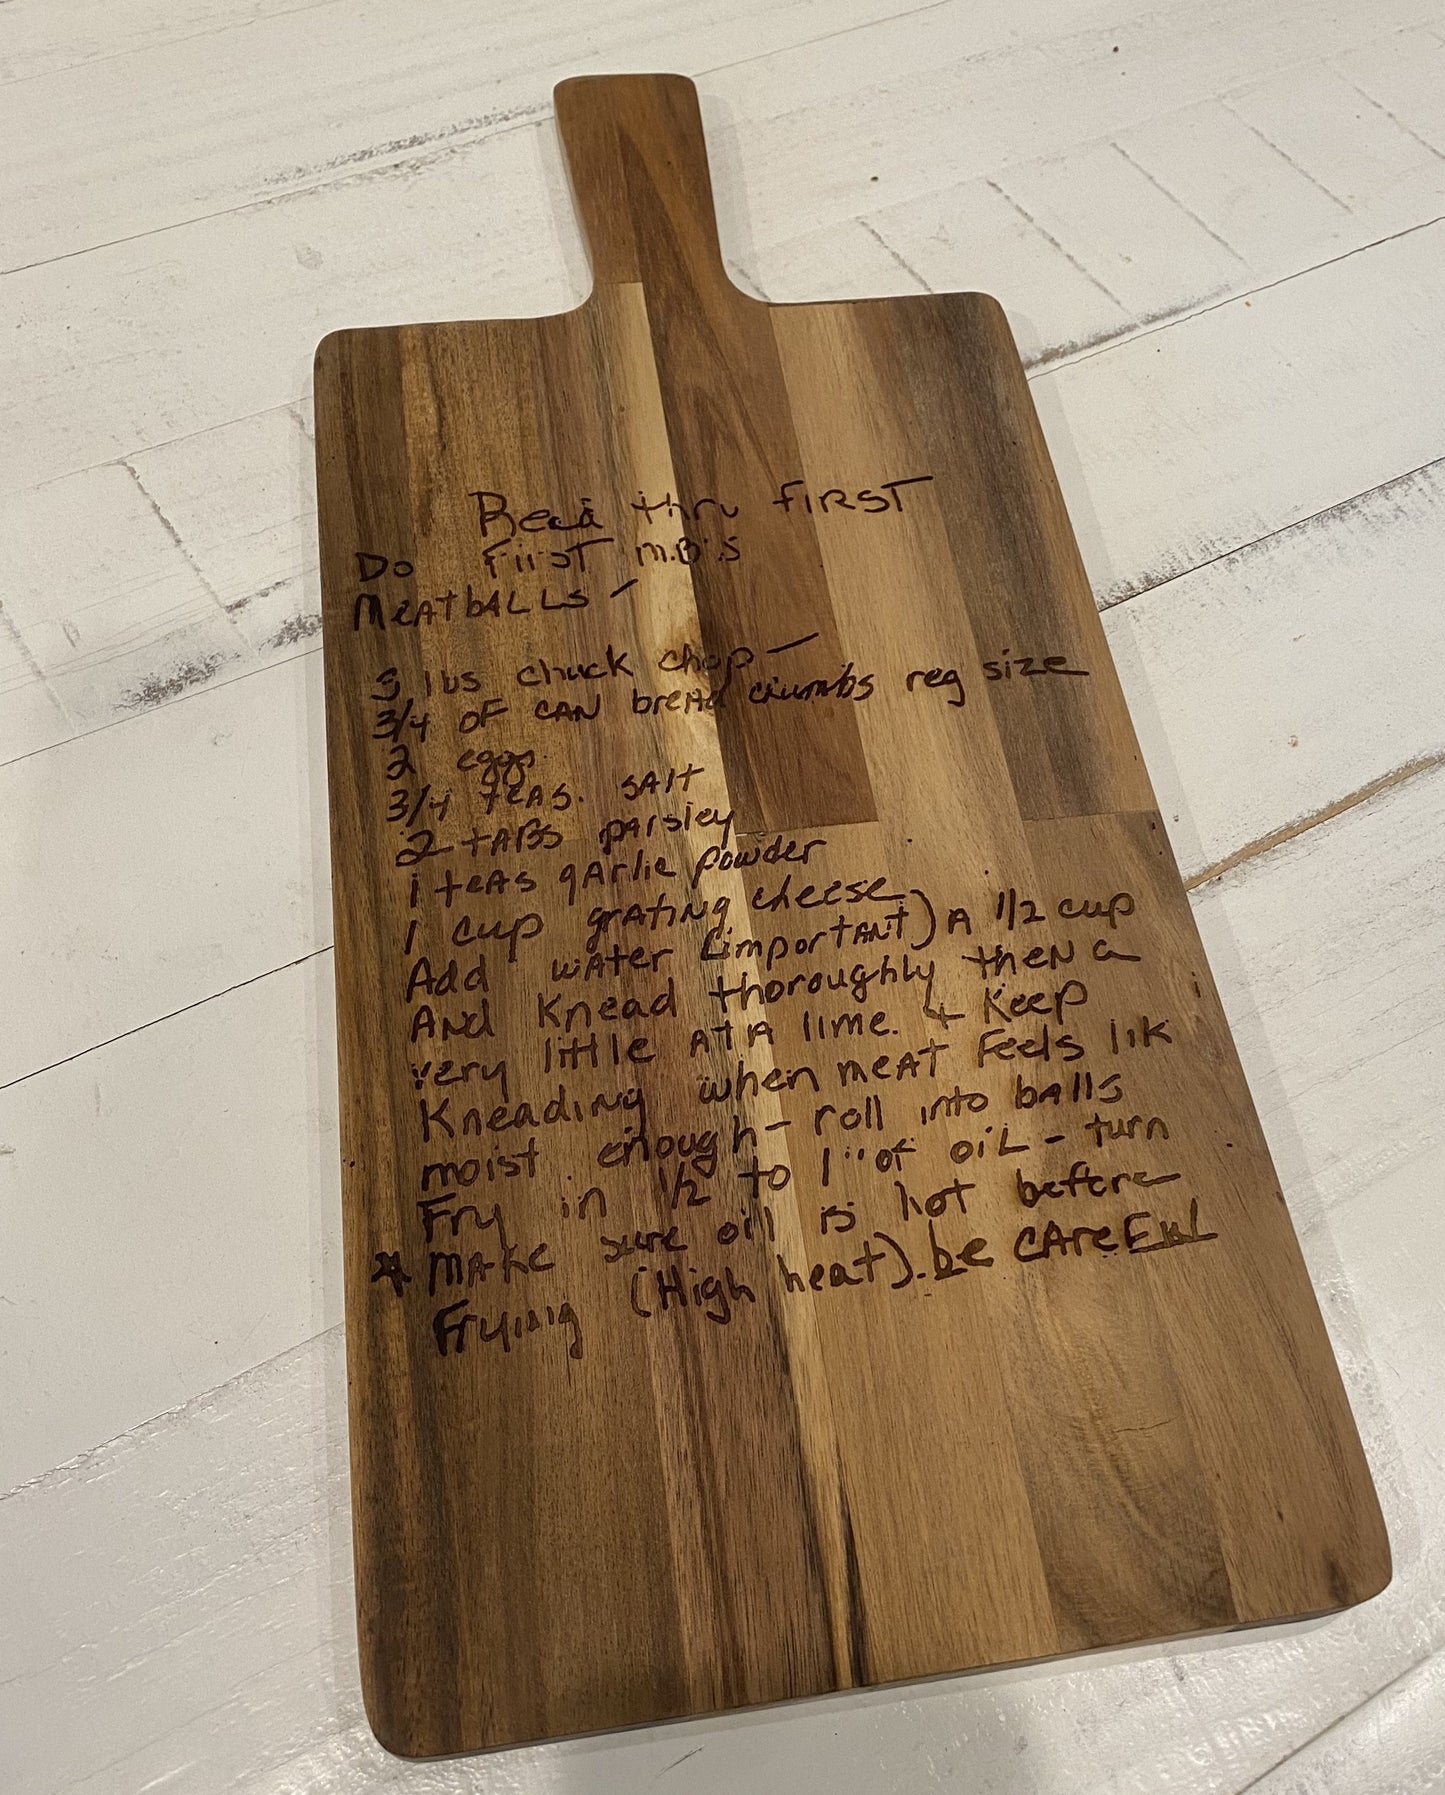 Read thru FIRST
Do First M.B.'s
MeAtbALLs -
3 lbs chuck chop -
3/4 OF CAN breAd crumbs reg size
2 eggs.
3/4 teAs. SAlt
2 tABS pArsley
1 teAs gArlic powder
1 cup grAting cheese
Add wAter (importANt) A 1/2 cup
ANd Knead thoroughly theN a
very little At A time. + Keep
Kneading when meAt Feels lik
moist enough - roll into bAlls
Fry in 1/2 to 1" of oiL - turn
* MAKe sure oil is hot before
Frying (High heat). be CAreFuL